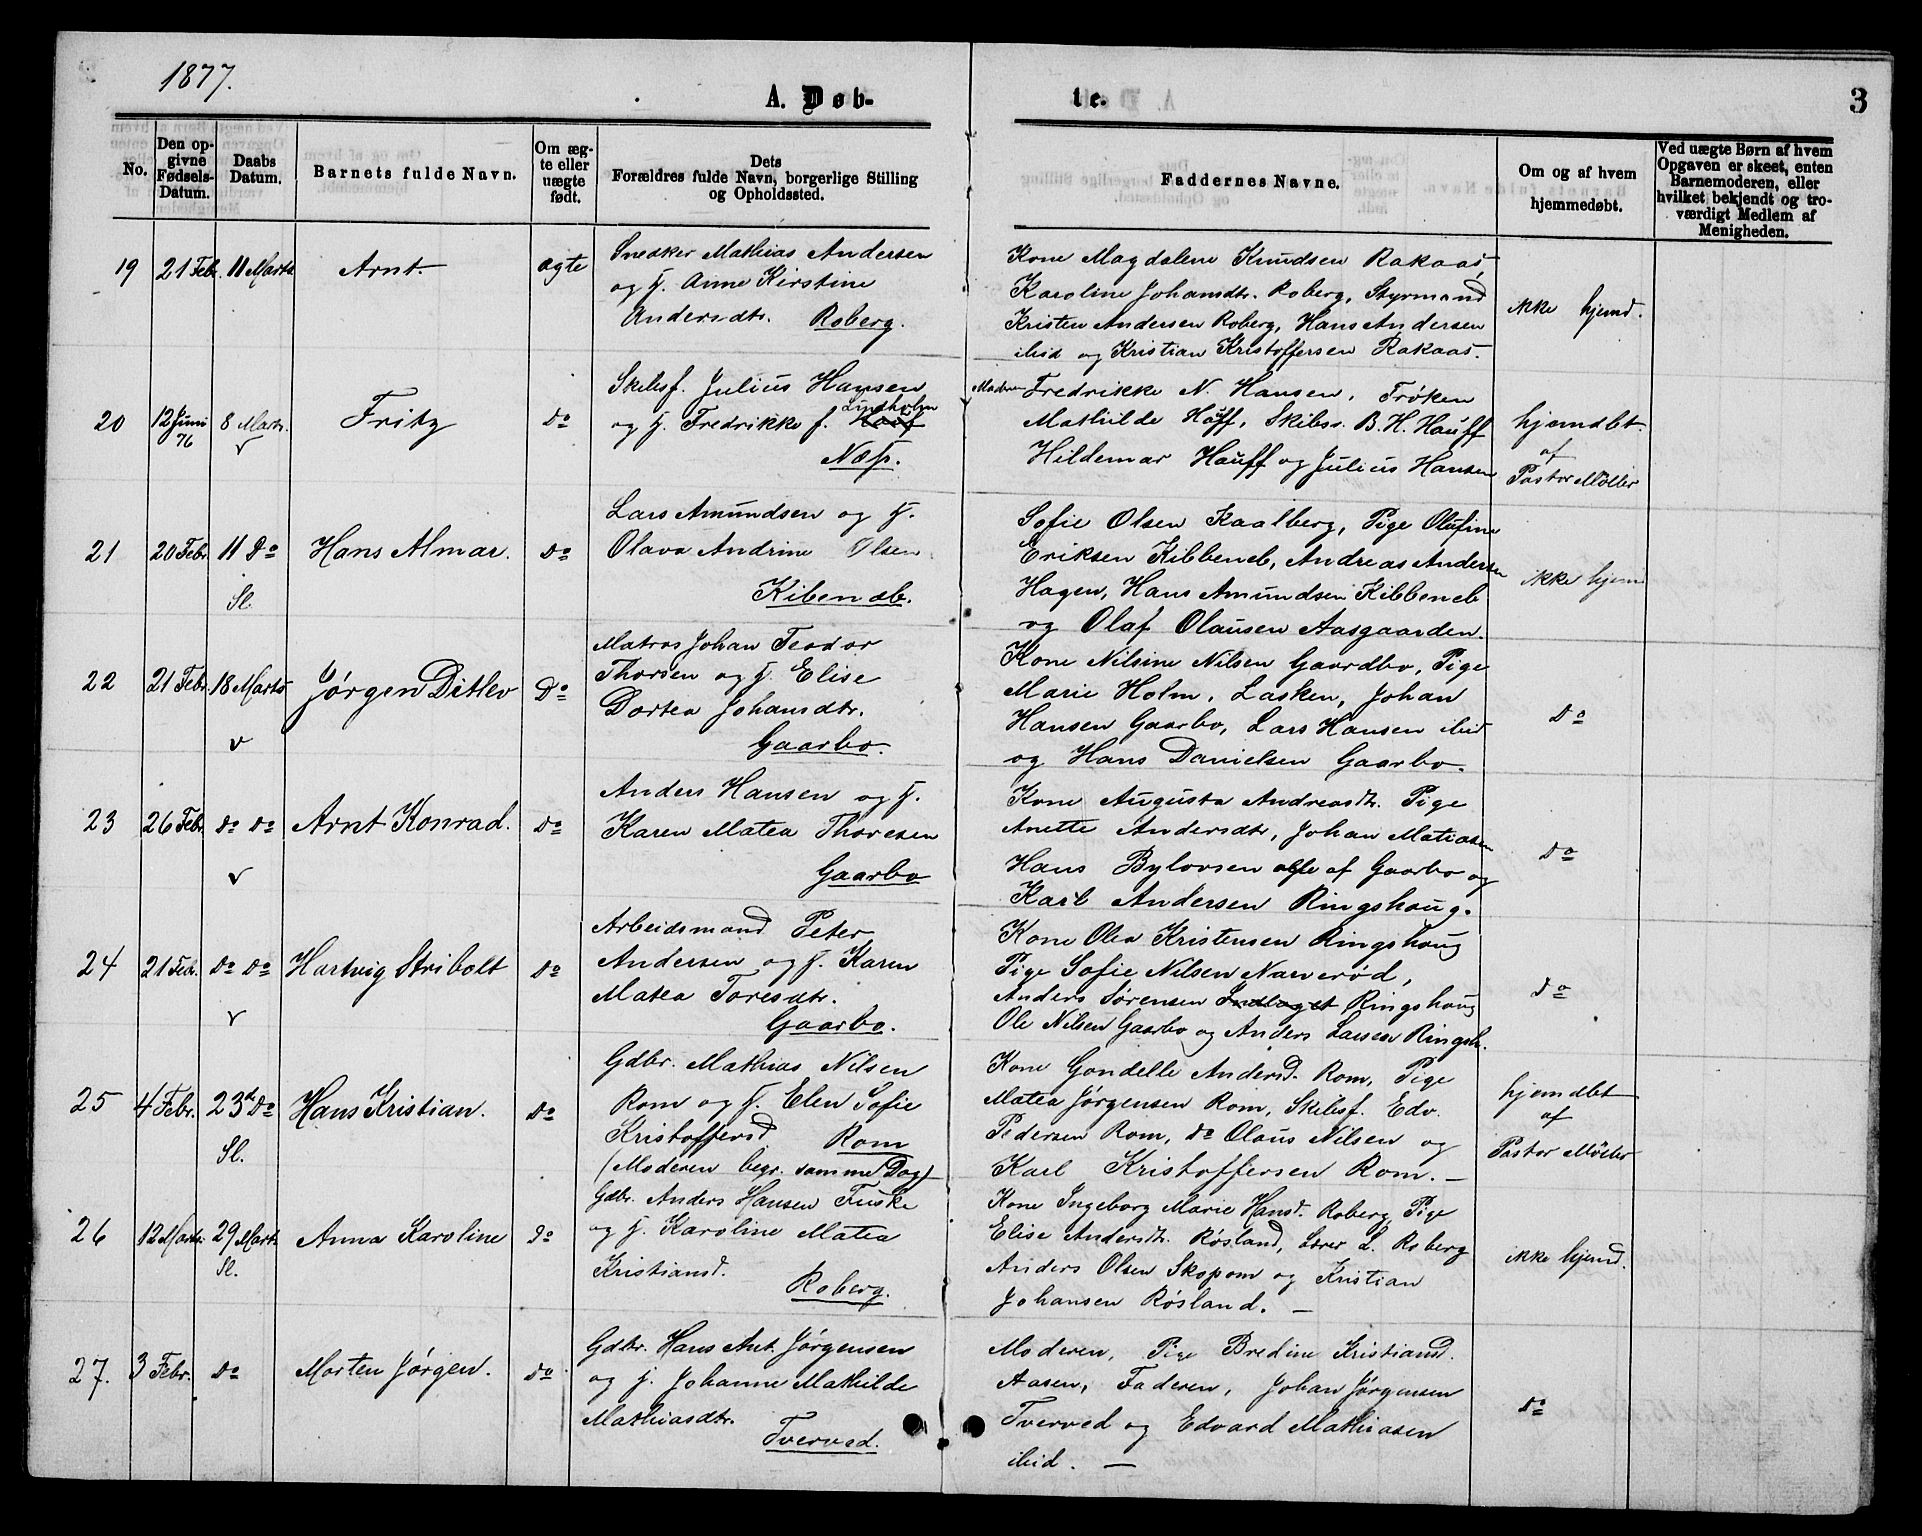 1877.
A. Døb-
te.
3
No.
Den op-
givne
Fødsels-
Datum.
Daabs
Datum.
Barnets fulde Navn.
Om æg-
te eller
uægte
født.
Dets
Forældres fulde Navn, borgerlige Stilling
og Opholdssted.
Faddernes Navne.
Om og af hvem
hjemmedøbt.
Ved uægte Børn af hvem
Opgaven er skeet, enten
Barnemoderen, eller
hvilket bekjendt og tro-
værdigt Medlem af
Menigheden.
19 21 Febr. 11 Marts Arnt. ægte
Snedker Mathias Andersen
og H. Anne Kirstine
Andersdtr. Roberg.
Kone Magdalene Knudsen Rakaas,
Karoline Johansdtr. Roberg, Styrmand
Kristen Andersen Roberg, Hans Andersen
ibid og Kristian Kristoffersen Rakaas.
ikke hjemd.
20 12 Juni 76 8 Marts. v Fritz do
Skibsf. Julius Hansen
og H. Fredrikke f. Lindholm
Næs.
Fredrikke N. Hansen, Frøken
Mathilde Hoff, Skibss. B. H. Hauff
Hildemar Hauff og Julius Hansen
hjemdbt.
af
Pastor Møller
21 20 Febr. 11 do Sl. Hans Almar. do
Lars Amundsen og H.
Olava Andrine Olsen
Kibenæb.
Sofie Olsen Kaalberg, Pige Olufine
Eriksen Kibbeneb, Andreas Andersen
Hagen, Hans Amundsen Kibbeneb
og Olaf Olausen Aasgaarden.
ikke hjem
22 21 Febr. 18 Marts v Jørgen Ditlev do
Matros Johan Teodor
Thorsen og H. Elise
Dortea Johansdtr.
Gaarbo.
Kone Nilsine Nilsen Gaardbo, Pige
Marie Holm, Lasken, Johan
Hansen Gaarbo, Lars Hansen ibid
og Hans Danielsen Gaarbo.
do
23 26 Febr. do do v Arnt Konrad. do
Anders Hansen og H.
Karen Matea Thoresen
Gaarbo
Kone Augusta Andreasdtr. Pige
Anette Andersdtr, Johan Matiasen
Hans Bylovsen alle af Gaarbo og
Karl Andersen Ringshoug.
do
24 21 Febr. do do v Hartvig Stribolt do
Arbeidsmand Peter
Andersen og H. Karen
Matea Toresdtr.
Gaarbo.
Kone Olea Kristensen Ringshoug
Pige Sofie Nilsen Narverød,
Anders Sørensen Ringshoug
Ole Nilsen Gaarbo og Anders Larsen Ringsh.
do
25 4 Febr. 23de do Sl. Hans Kristian. do
Gdbr. Mathias Nilsen
Rom og H. Elen Sofie
Kristoffersd Rom
(Moderen begr. samme Dag)
Kone Gondelle Andersd. Rom, Pige
Matea Jørgensen Rom, Skibsf. Edv.
Pedersen Rom, do Olaus Nilsen og
Karl Kristoffersen Rom. —
hjemdbt
af
Pastor Møller
26 12 Marts. 29 Marts Sl. Anna Karoline do
Gdbr. Anders Hansen Fuske
og H. Karoline Matea
Kristiansd.
Roberg.
Kone Ingeborg Marie Hansd. Roberg, Pige
Elise Andersdtr. Røsland, Lærer L. Roberg
Anders Olsen Skopom og Kristian
Johansen Røsland. —
ikke hjemd.
27. 3 Febr. do Morten Jørgen. do
Gdbr. Hans Ant. Jørgensen
og H. Johanne Mathilde
Mathiasdtr.
Tverved.
Moderen, Pige Bredine Kristiansd.
Aasen, Faderen, Johan Jørgensen
Tverved og Edvard Mathiasen
ibid. —
do